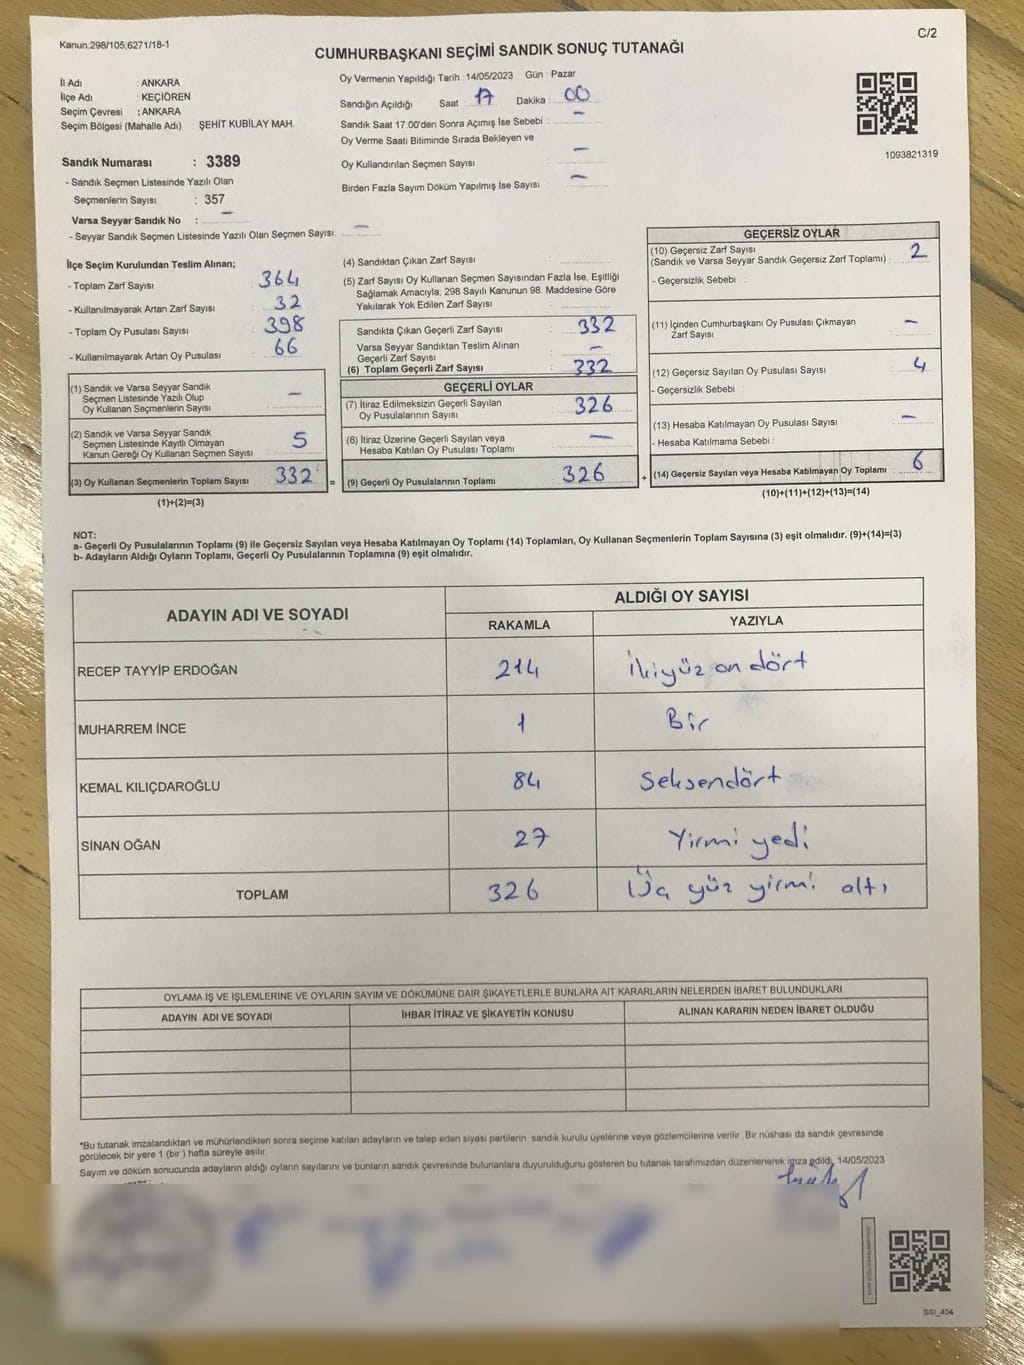 Kanun;298/105;6271/18-1
C/2
CUMHURBAŞKANI SEÇİMİ SANDIK SONUÇ TUTANAĞI
İl Adı : ANKARA
İlçe Adı : KEÇİÖREN
Seçim Çevresi : ANKARA
Seçim Bölgesi (Mahalle Adı) : ŞEHİT KUBİLAY MAH.
Sandık Numarası : 3389
- Sandık Seçmen Listesinde Yazılı Olan
Seçmenlerin Sayısı : 357
Varsa Seyyar Sandık No : –
- Seyyar Sandık Seçmen Listesinde Yazılı Olan Seçmen Sayısı: –
Oy Vermenin Yapıldığı Tarih :14/05/2023 Gün : Pazar
Sandığın Açıldığı Saat : 17 Dakika : 00
Sandık Saat 17.00'den Sonra Açımış İse Sebebi : –
Oy Verme Saati Bitiminde Sırada Bekleyen ve
Oy Kullandırılan Seçmen Sayısı –
Birden Fazla Sayım Döküm Yapılmış İse Sayısı : –
1093821319
İlçe Seçim Kurulundan Teslim Alınan;
- Toplam Zarf Sayısı : 364
- Kullanılmayarak Artan Zarf Sayısı : 32
- Toplam Oy Pusulası Sayısı : 398
- Kullanılmayarak Artan Oy Pusulası : 66
(1) Sandık ve Varsa Seyyar Sandık
Seçmen Listesinde Yazılı Olup
Oy Kullanan Seçmenlerin Sayısı : –
(2) Sandık ve Varsa Seyyar Sandık
Seçmen Listesinde Kayıtlı Olmayan
Kanun Gereği Oy Kullanan Seçmen Sayısı : 5
(3) Oy Kullanan Seçmenlerin Toplam Sayısı : 332 =
(1)+(2)=(3)
(4) Sandıktan Çıkan Zarf Sayısı :
(5) Zarf Sayısı Oy Kullanan Seçmen Sayısından Fazla İse, Eşitliği
Sağlamak Amacıyla, 298 Sayılı Kanunun 98. Maddesine Göre
Yakılarak Yok Edilen Zarf Sayısı :
Sandıkta Çıkan Geçerli Zarf Sayısı : 332
Varsa Seyyar Sandıktan Teslim Alınan
Geçerli Zarf Sayısı : –
(6) Toplam Geçerli Zarf Sayısı : 332
GEÇERLİ OYLAR
(7) İtiraz Edilmeksizin Geçerli Sayılan
Oy Pusulalarının Sayısı : 326
(8) İtiraz Üzerine Geçerli Sayılan veya
Hesaba Katılan Oy Pusulası Toplamı : –
(9) Geçerli Oy Pusulalarının Toplamı : 326 +
GEÇERSİZ OYLAR
(10) Geçersiz Zarf Sayısı
(Sandık ve Varsa Seyyar Sandık Geçersiz Zarf Toplamı) : 2
- Geçersizlik Sebebi :
(11) İçinden Cumhurbaşkanı Oy Pusulası Çıkmayan
Zarf Sayısı : –
(12) Geçersiz Sayılan Oy Pusulası Sayısı : 4
- Geçersizlik Sebebi :
(13) Hesaba Katılmayan Oy Pusulası Sayısı : –
- Hesaba Katılmama Sebebi :
(14) Geçersiz Sayılan veya Hesaba Katılmayan Oy Toplamı : 6
(10)+(11)+(12)+(13)=(14)
NOT:
a- Geçerli Oy Pusulalarının Toplamı (9) ile Geçersiz Sayılan veya Hesaba Katılmayan Oy Toplamı (14) Toplamları, Oy Kullanan Seçmenlerin Toplam Sayısına (3) eşit olmalıdır. (9)+(14)=(3)
b- Adayların Aldığı Oyların Toplamı, Geçerli Oy Pusulalarının Toplamına (9) eşit olmalıdır.
ADAYIN ADI VE SOYADI ALDIĞI OY SAYISI
RAKAMLA YAZIYLA
RECEP TAYYİP ERDOĞAN 214 İkiyüz on dört
MUHARREM İNCE 1 Bir
KEMAL KILIÇDAROĞLU 84 Seksendört
SİNAN OĞAN 27 Yirmi yedi
TOPLAM 326 Üç yüz yirmi altı
OYLAMA İŞ VE İŞLEMLERİNE VE OYLARIN SAYIM VE DÖKÜMÜNE DAİR ŞİKAYETLERLE BUNLARA AİT KARARLARIN NELERDEN İBARET BULUNDUKLARI
ADAYIN ADI VE SOYADI İHBAR İTİRAZ VE ŞİKAYETİN KONUSU ALINAN KARARIN NEDEN İBARET OLDUĞU
*Bu tutanak imzalandıktan ve mühürlendikten sonra seçime katılan adayların ve talep eden siyasi partilerin sandık kurulu üyelerine veya gözlemcilerine verilir. Bir nüshası da sandık çevresinde
görülecek bir yere 1 (bir ) hafta süreyle asılır.
Sayım ve döküm sonucunda adayların aldığı oyların sayılarını ve bunların sandık çevresinde bulunanlara duyurulduğunu gösteren bu tutanak tarafımızdan düzenlenerek imza edildi. 14/05/2023
SSI_404